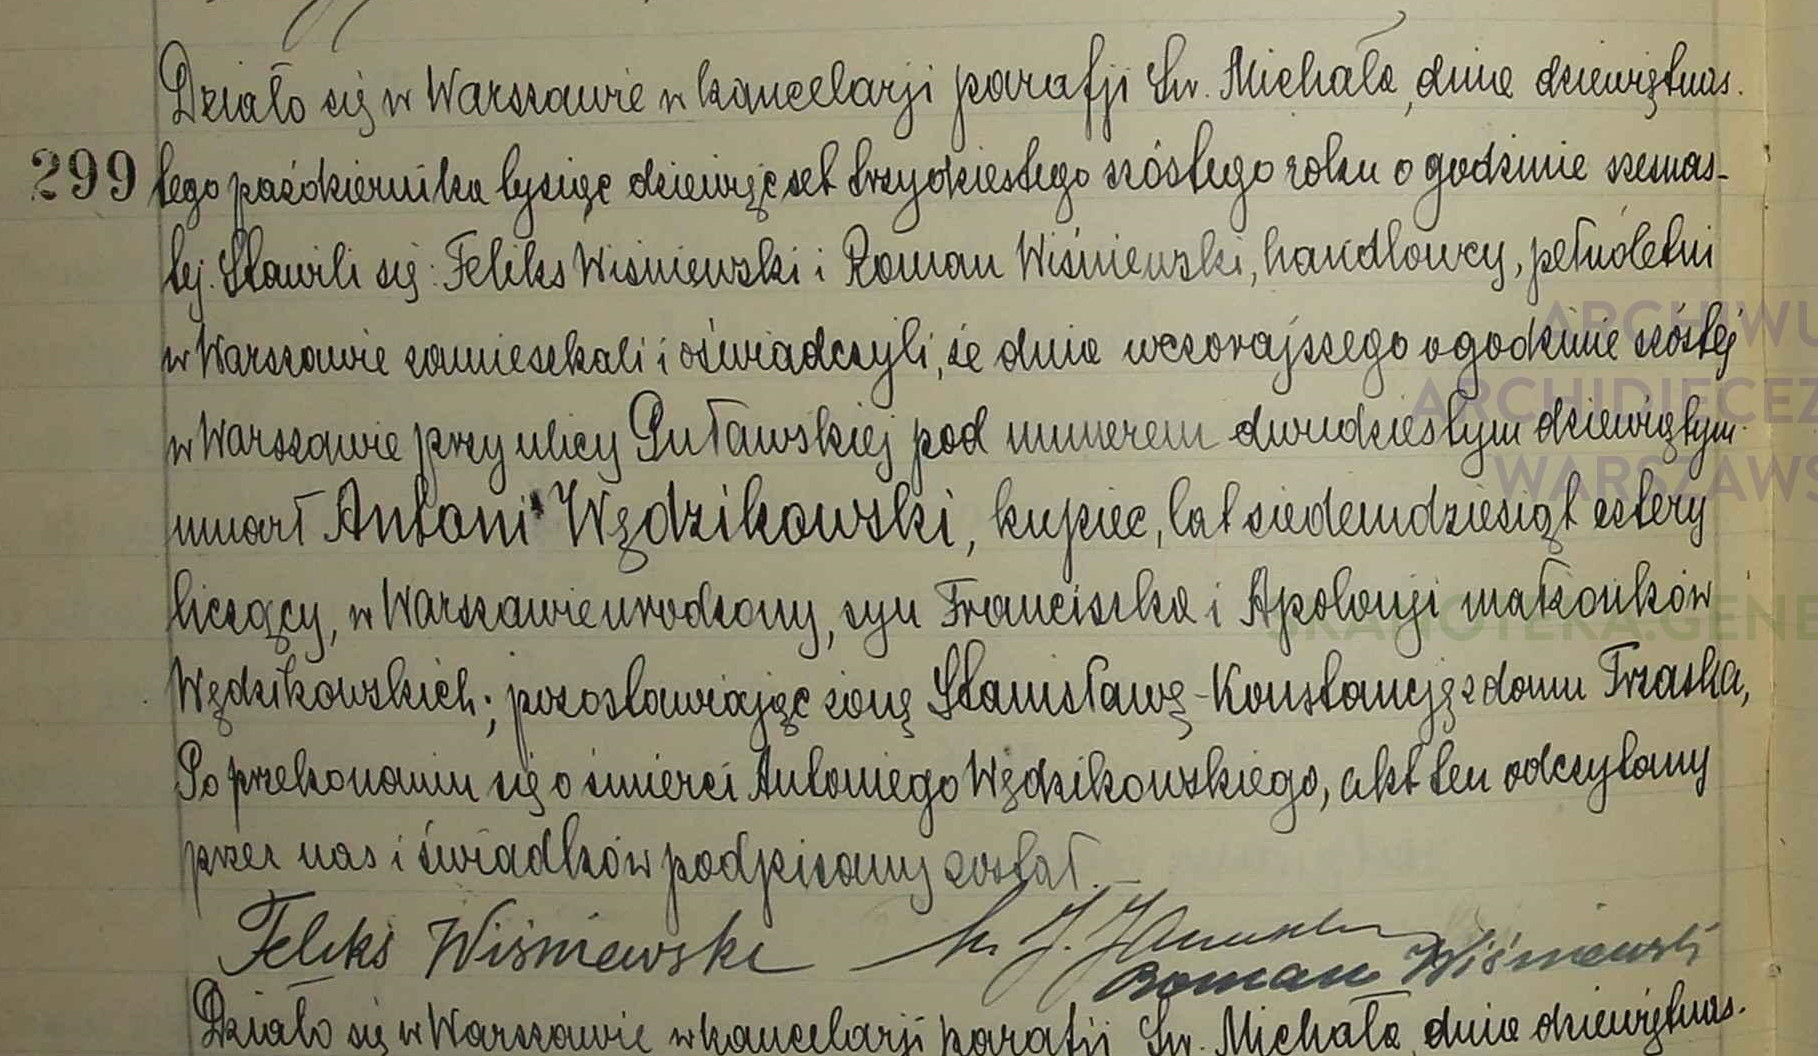 Działo się w Warszawie w kancelarji parafji Św. Michała, dnia dziewiętnas.
299 tego października tysiąc dziewięćset trzydziestego szóstego roku o godzinie szesnas-
tej. Stawili się: Feliks Wiśniewski i Roman Wiśniewski, handlowcy, pełnoletni
w Warszawie zamieszkali i oświadczyli, że dnia wczorajszego o godzinie szóstej
w Warszawie przy ulicy Puławskiej pod numerem dwudziestym dziewiątym
umarł Antoni Wędzikowski, kupiec, lat siedemdziesiąt cztery
liczący, w Warszawie urodzony, syn Franciszka i Apolonji małżonków
Wędzikowskich; pozostawiając żonę Stanisławę-Konstancję z domu Trzaska,
Po przekonaniu się o śmierci Antoniego Wędzikowskiego, akt ten odczytany
przez nas i świadków podpisany został.
Feliks Wiśniewski
Roman Wiśniewski
Działo się w Warszawie w kancelarji parafji Św. Michała, dnia dziewiętnas.
ARCHIWU
ARCHIDIECEZ
WARSZAWS
SKANOTEKA.GENE